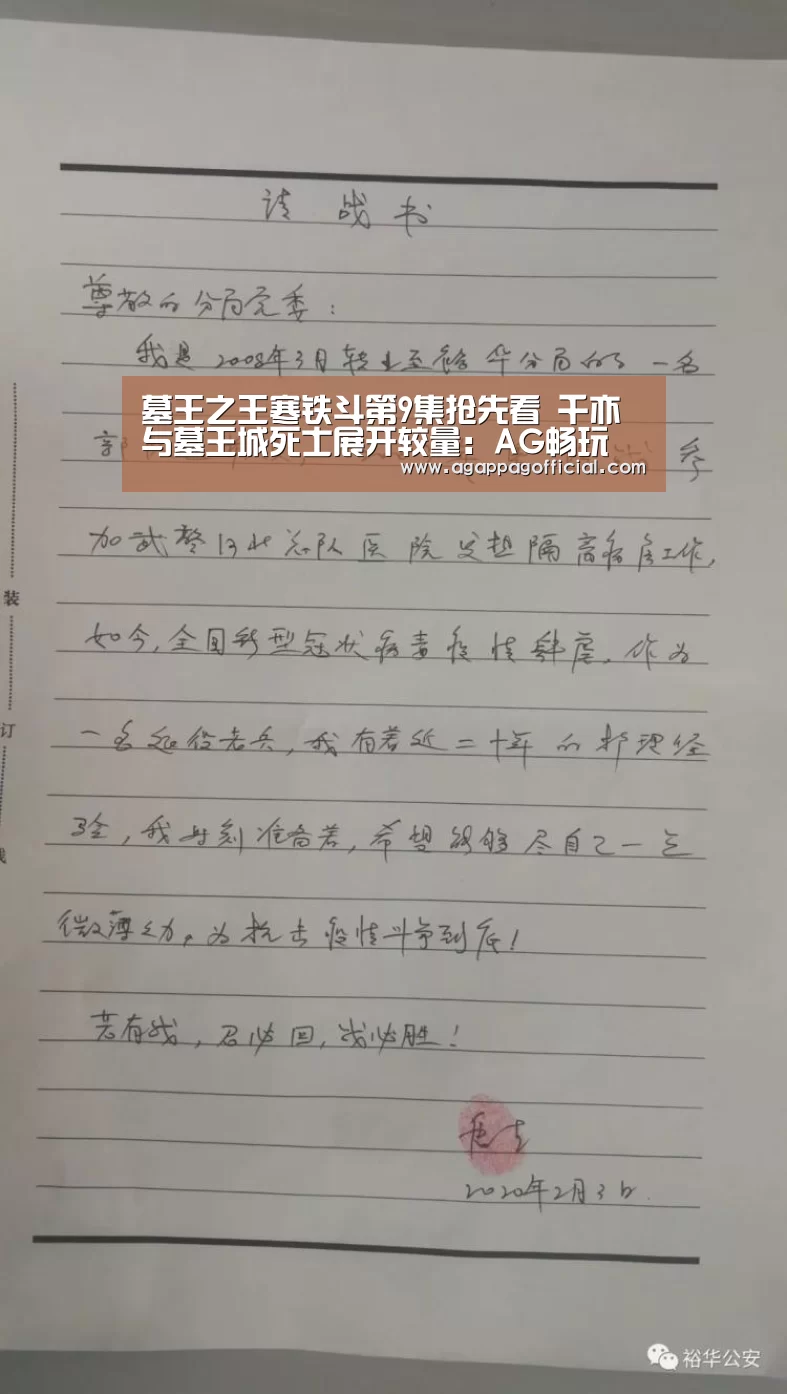 请战书
尊敬的分局党委：
我是2008年3月转业至裕华分局的一名
墓王之王寒铁斗第9集抢先看 干亦
与墓王城死士展开较量：AG畅玩
www.agappagofficial.com
参
加武警河北总队医院发热隔离病房工作，
如今，全国新型冠状病毒疫情肆虐，作为
一名退役老兵，我有着近二十年的护理经
验，我时刻准备着，希望能够尽自己一己
微薄之力，为抗击疫情斗争到底！
若有战，召必回，战必胜！
2020年2月3日
装
订
线
裕华公安